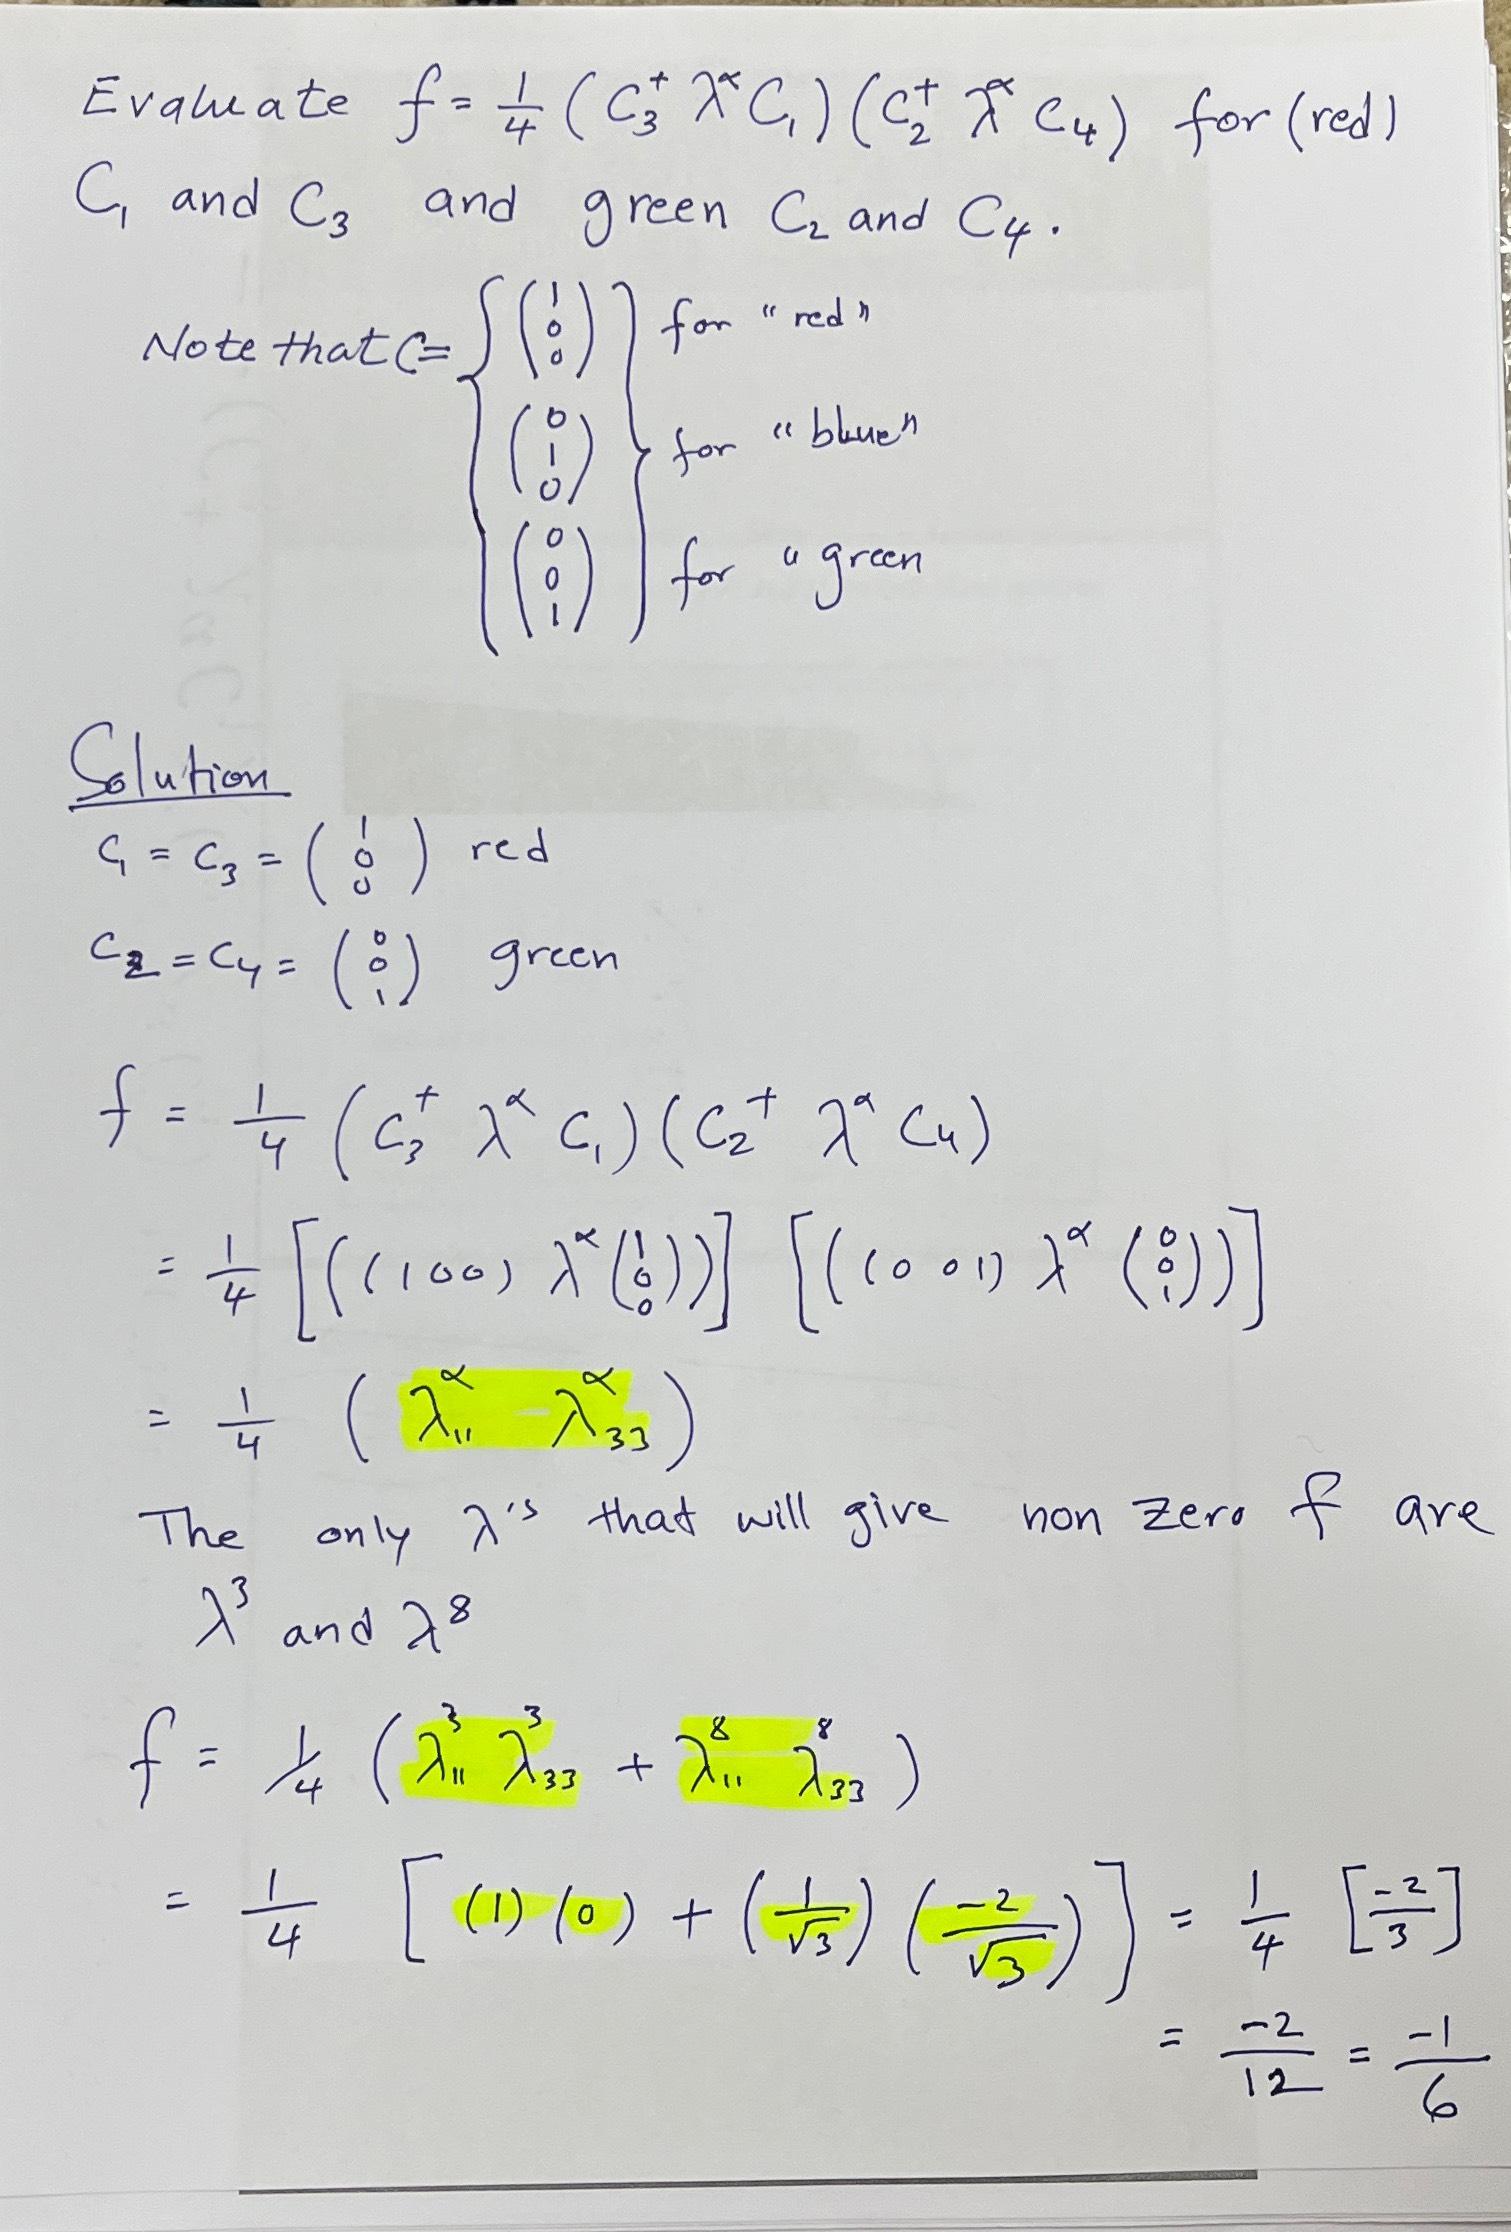 Evaluate f = 1/4 (C₃⁺ λ^α C₁) (C₂⁺ λ^α C₄) for (red)
C₁ and C₃ and green C₂ and C₄.
Note that C = { (1 0 0) } for "red"
(0 1 0) for "blue"
(0 0 1) for "green
Solution
C₁ = C₃ = (1 0 0) red
C₂ = C₄ = (0 0 1) green
f = 1/4 (C₃⁺ λ^α C₁) (C₂⁺ λ^α C₄)
= 1/4 [((1 0 0) λ^α (1 0 0))] [((0 0 1) λ^α (0 0 1))]
= 1/4 (λ^α₁₁ λ^α₃₃)
The only λ's that will give non zero f are
λ³ and λ⁸
f = 1/4 (λ³₁₁ λ³₃₃ + λ⁸₁₁ λ⁸₃₃)
= 1/4 [(1) (0) + (1/√3) (-2/√3)] = 1/4 [-2/3]
= -2/12 = -1/6